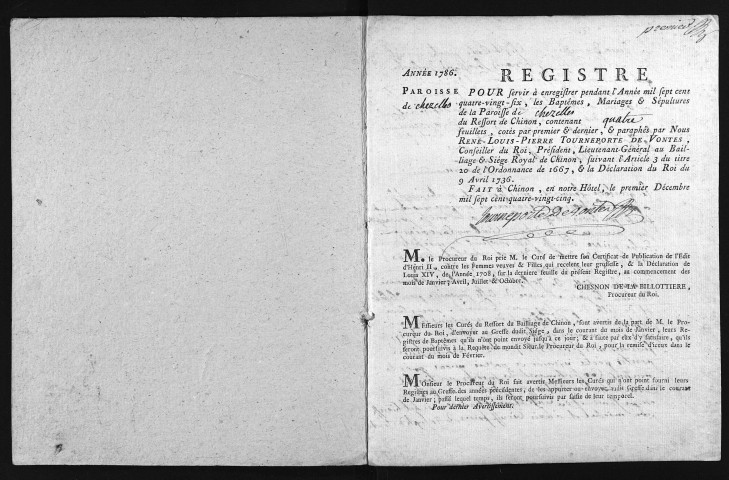 premier
ANNÉE 1786.
REGISTRE
PAROISSE
de chezelles
POUR servir à enregistrer pendant l'Année mil sept cent
quatre-vingt-six, les Baptêmes, Mariages & Sépultures
de la Paroisse de chezelles
du Ressort de Chinon, contenant quatre
feuillets, cotés par premier & dernier, & paraphés par Nous
RENÉ-LOUIS-PIERRE TOURNEPORTE DE VONTES,
Conseiller du Roi, Président, Lieutenant-Général au Bail-
liage & Siége Royal de Chinon, suivant l'Article 3 du titre
20 de l'Ordonnance de 1667, & la Déclaration du Roi du
9 Avril 1736.
FAIT à Chinon, en notre Hôtel, le premier Décembre
mil sept cent-quatre-vingt-cinq.
Tourneporte De vontes
M. le Procureur du Roi prie M. le Curé de mettre son Certificat de Publication de l'Edit
d'Henri II, contre les Femmes veuves & Filles, qui recelent leur grossesse, & la Déclaration de
Louis XIV, de l'Année 1708, sur la derniere feuille du présent Registre, au commencement des
mois de Janvier; Avril, Juillet & Octobre.
CHESNON DE LA BILLOTTIERE,
Procureur du Roi.
Messieurs les Curés du Ressort du Bailliage de Chinon, sont avertis de la part de M. le Pro-
cureur du Roi, d'envoyer au Greffe dudit Siége, dans le courant du mois de Janvier, leurs Re-
gistres de Baptêmes qu'ils n'ont point envoyé jusqu'à ce jour; & à faute par eux d'y satisfaire, qu'ils
seront poursuivis à la Requête de mondit Sieur le Procureur du Roi, pour la remise d'iceux dans le
courant du mois de Février.
Monsieur le Procureur du Roi fait avertir Messieurs les Curés qui n'ont point fourni leurs
Registres au Greffe, des années précédentes, de les apporter ou envoyer audit Greffe dans le courant
de Janvier; passé lequel temps, ils seront poursuivis par saisie de leur temporel.
Pour dernier Avertissement.